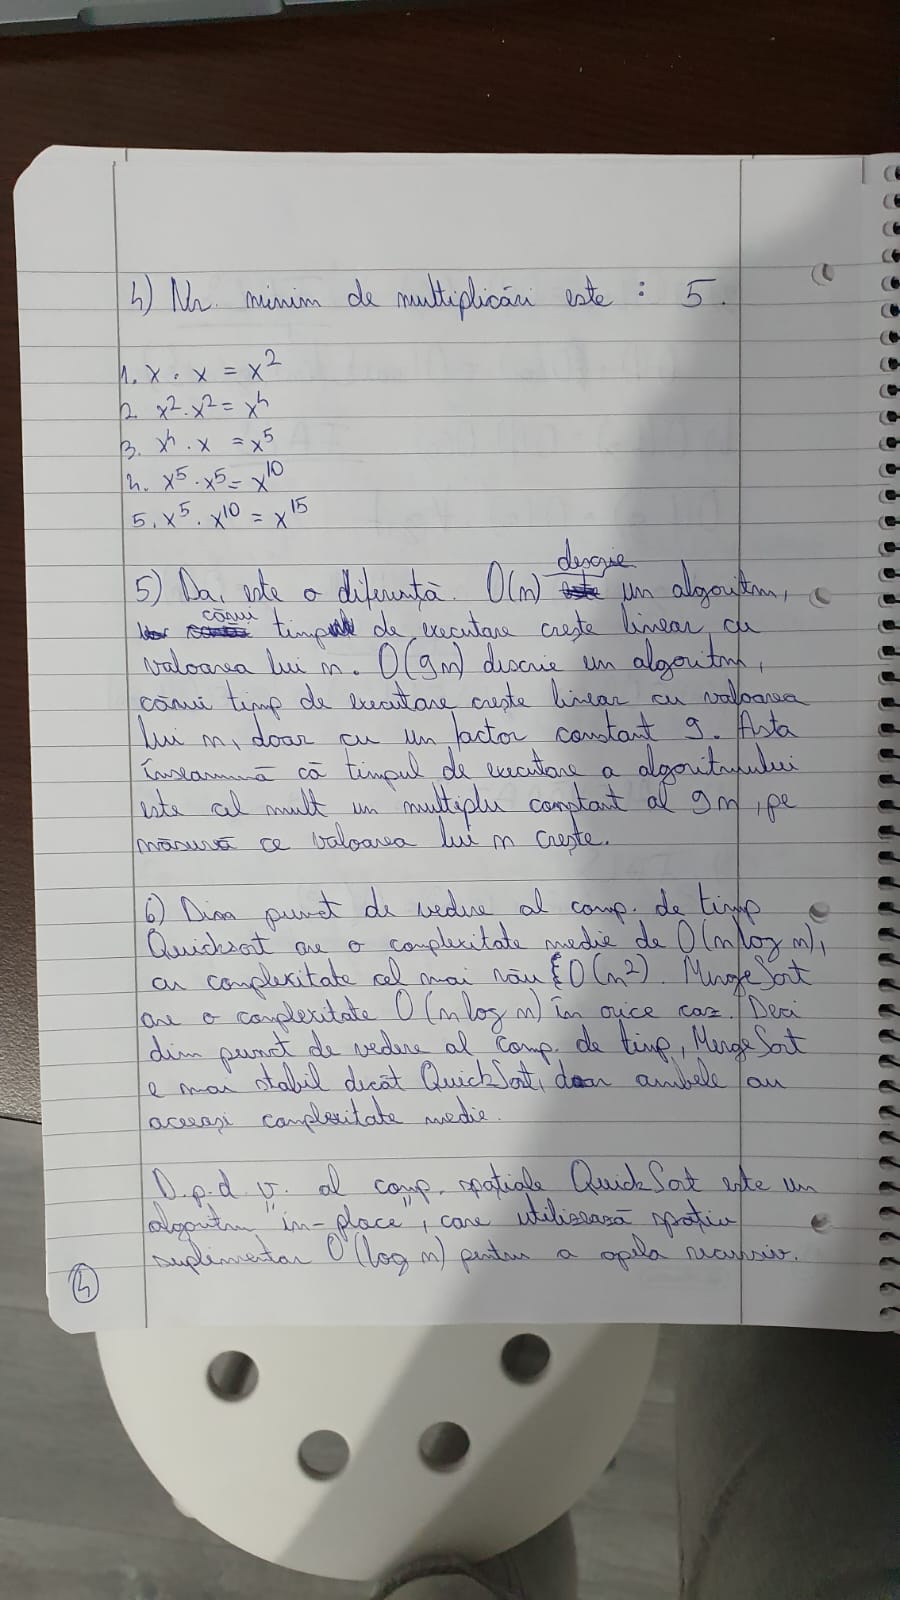 4) Nr. minim de multiplicări este : 5.
1. x · x = x²
2. x² · x² = x⁴
3. x⁴ · x = x⁵
4. x⁵ · x⁵ = x¹⁰
5. x⁵ · x¹⁰ = x¹⁵
5) Da, este o diferență. O(n) descrie un algoritm,
cărui timp de executare crește linear cu
valoarea lui n. O(9n) descrie un algoritm,
cărui timp de executare crește linear cu valoarea
lui n, doar cu un factor constant 9. Asta
înseamnă că timpul de executare a algoritmului
este cel mult un multiplu constant al 9n, pe
măsură ce valoarea lui n crește.
6) Din punct de vedere al comp. de timp
Quicksort are o complexitate medie de O(n log n),
cu complexitate cel mai rău O(n²). MergeSort
are o complexitate O(n log n) în orice caz. Deci
din punct de vedere al comp. de timp, MergeSort
e mai stabil decât QuickSort, doar ambele au
aceeași complexitate medie.
D.p.d.v. al comp. spațiale QuickSort este un
algoritm "in-place", care utilizează spațiu
suplimentar O(log n) pentru a apela recursiv.
4